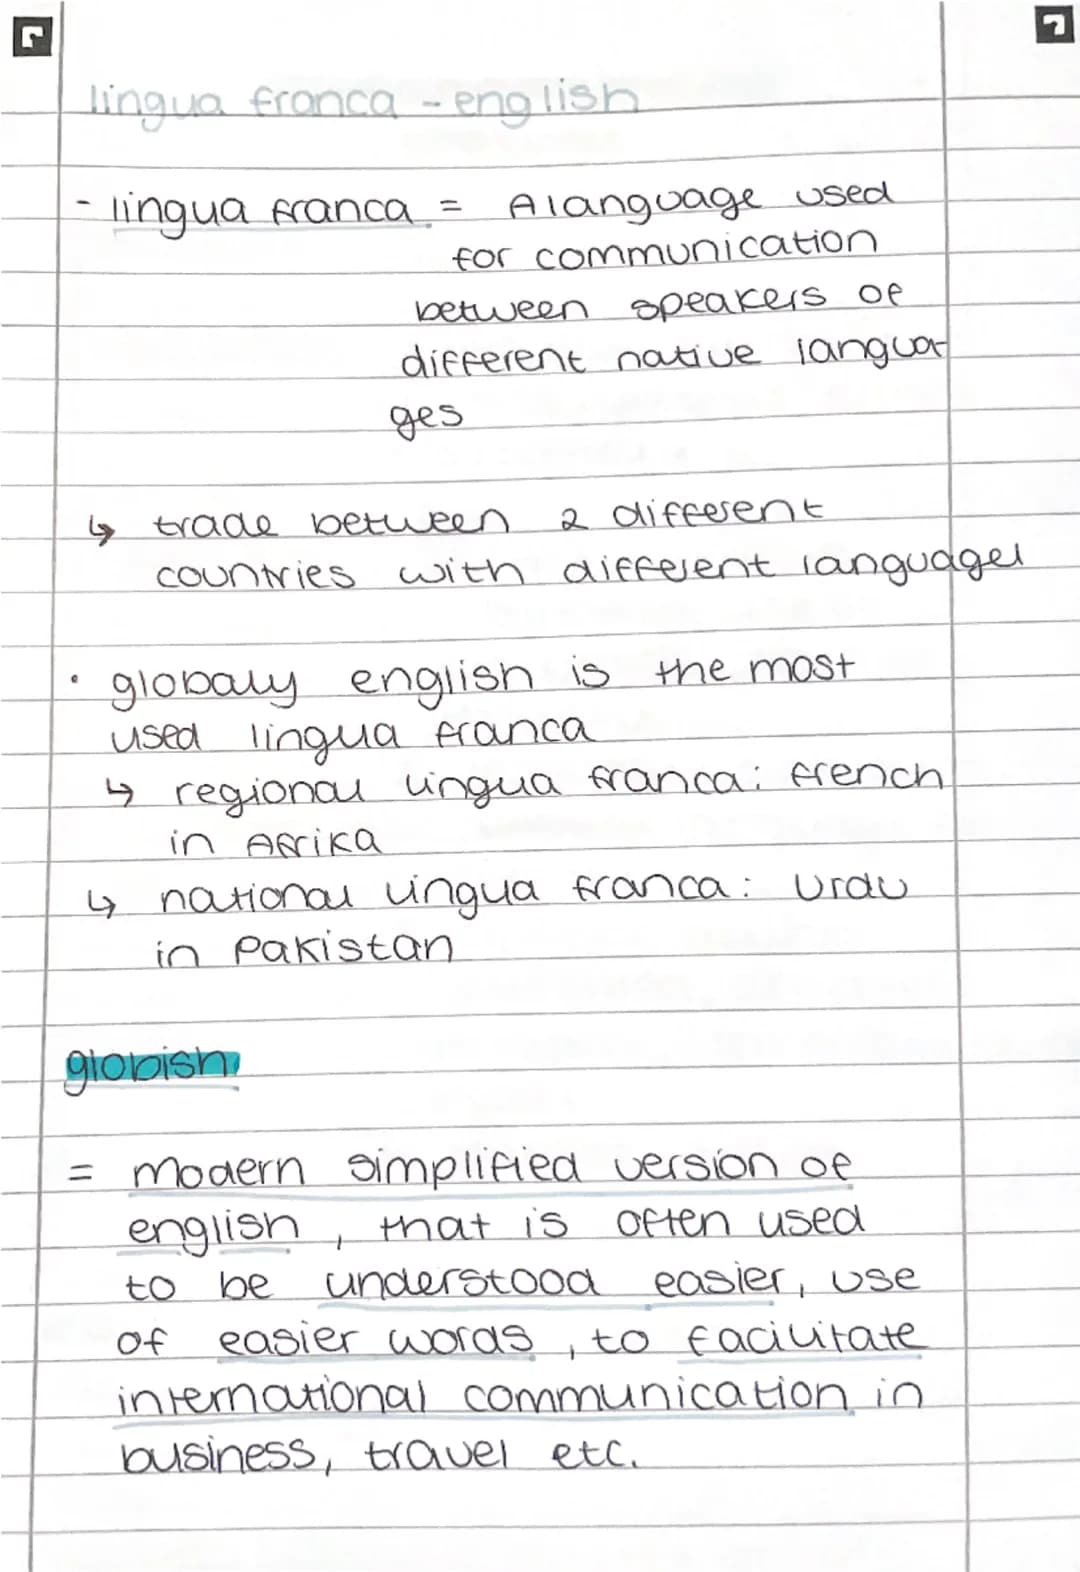 lingua franca - english
- lingua franca = A language used
for communication
between speakers of
different native langua
ges
↳ trade between 2 different
countries with different languages
• globaly english is the most
used lingua franca
↳ regional lingua franca: french
in Afrika
↳ national lingua franca: Urdu
in Pakistan
globish
= modern simplified version of
english, that is often used
to be understood easier, use
of easier words, to facilitate
international communication in
business, travel etc.